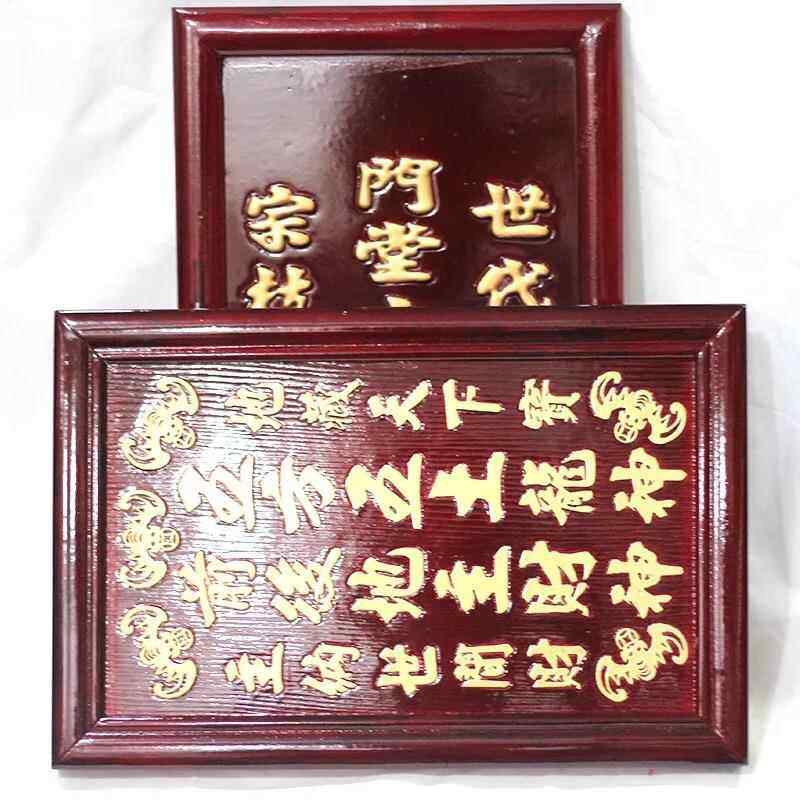 世代
門堂
宗枝
地藏天下寶
五方五土龍神
前後地主財神
主納世間財